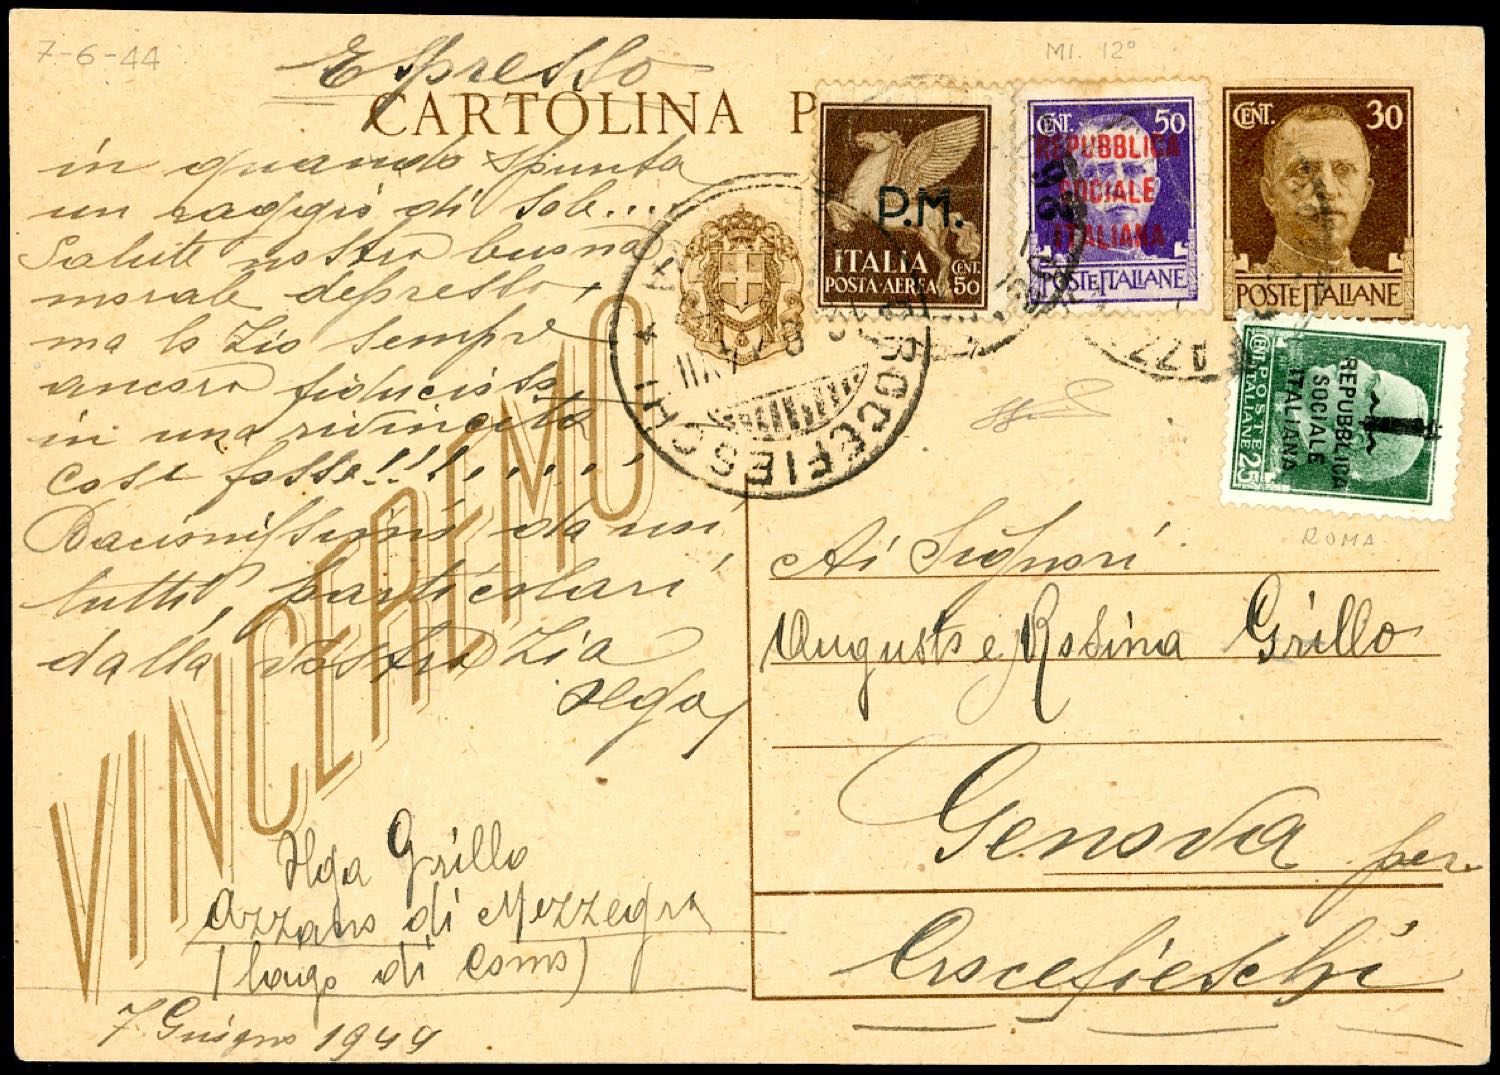 7-6-44
MI. 12°
Espresso
CARTOLINA P
in quando spunta
un raggio di sole...
Salute nostra buona
morale depresso,
ma lo Zio sempre
ancora fiducioso
in una rivincita
così fosse!!!.....
Bacionissimi da noi
tutti, particolari
dalla vostra Zia
Ilga
VINCEREMO
P.M.
ITALIA
CENT. 50
POSTA AEREA
CENT. 50
REPUBBLICA
SOCIALE
ITALIANA
POSTE ITALIANE
CENT. 30
POSTE ITALIANE
CENT. 25
POSTE
ITALIANE
REPUBBLICA
SOCIALE
ITALIANA
CROCEFIESCHI
ROMA
Ai Signori
Augusto e Rosina Grillo
Genova per
Crocefieschi
Ilga Grillo
Azzano di Mezzegra
(lago di Como)
7 Giugno 1944